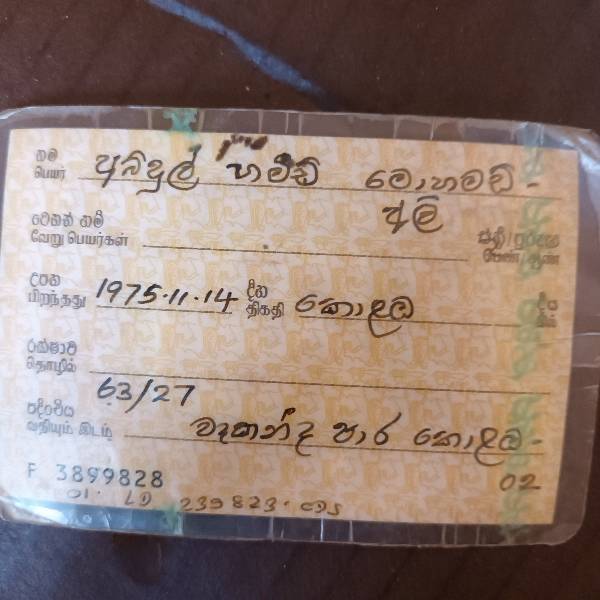 නම අබ්දුල් හමීඩ් මොහමඩ් -
பெயர்
අලි
වෙනත් නම් ස්ත්‍රී/පුරුෂ
வேறு பெயர்கள் பெண்/ஆண்
උපන 1975.11.14 දින කොළඹ
பிறந்தது திகதி
රක්ෂාව
தொழில்
63/27
පදිංචිය වැකන්ද පාර කොළඹ -
வதியும் இடம்
F 3899828 02
01. LD 239823.